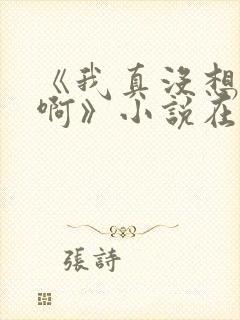 《我真没想
啊》小说在
張詩